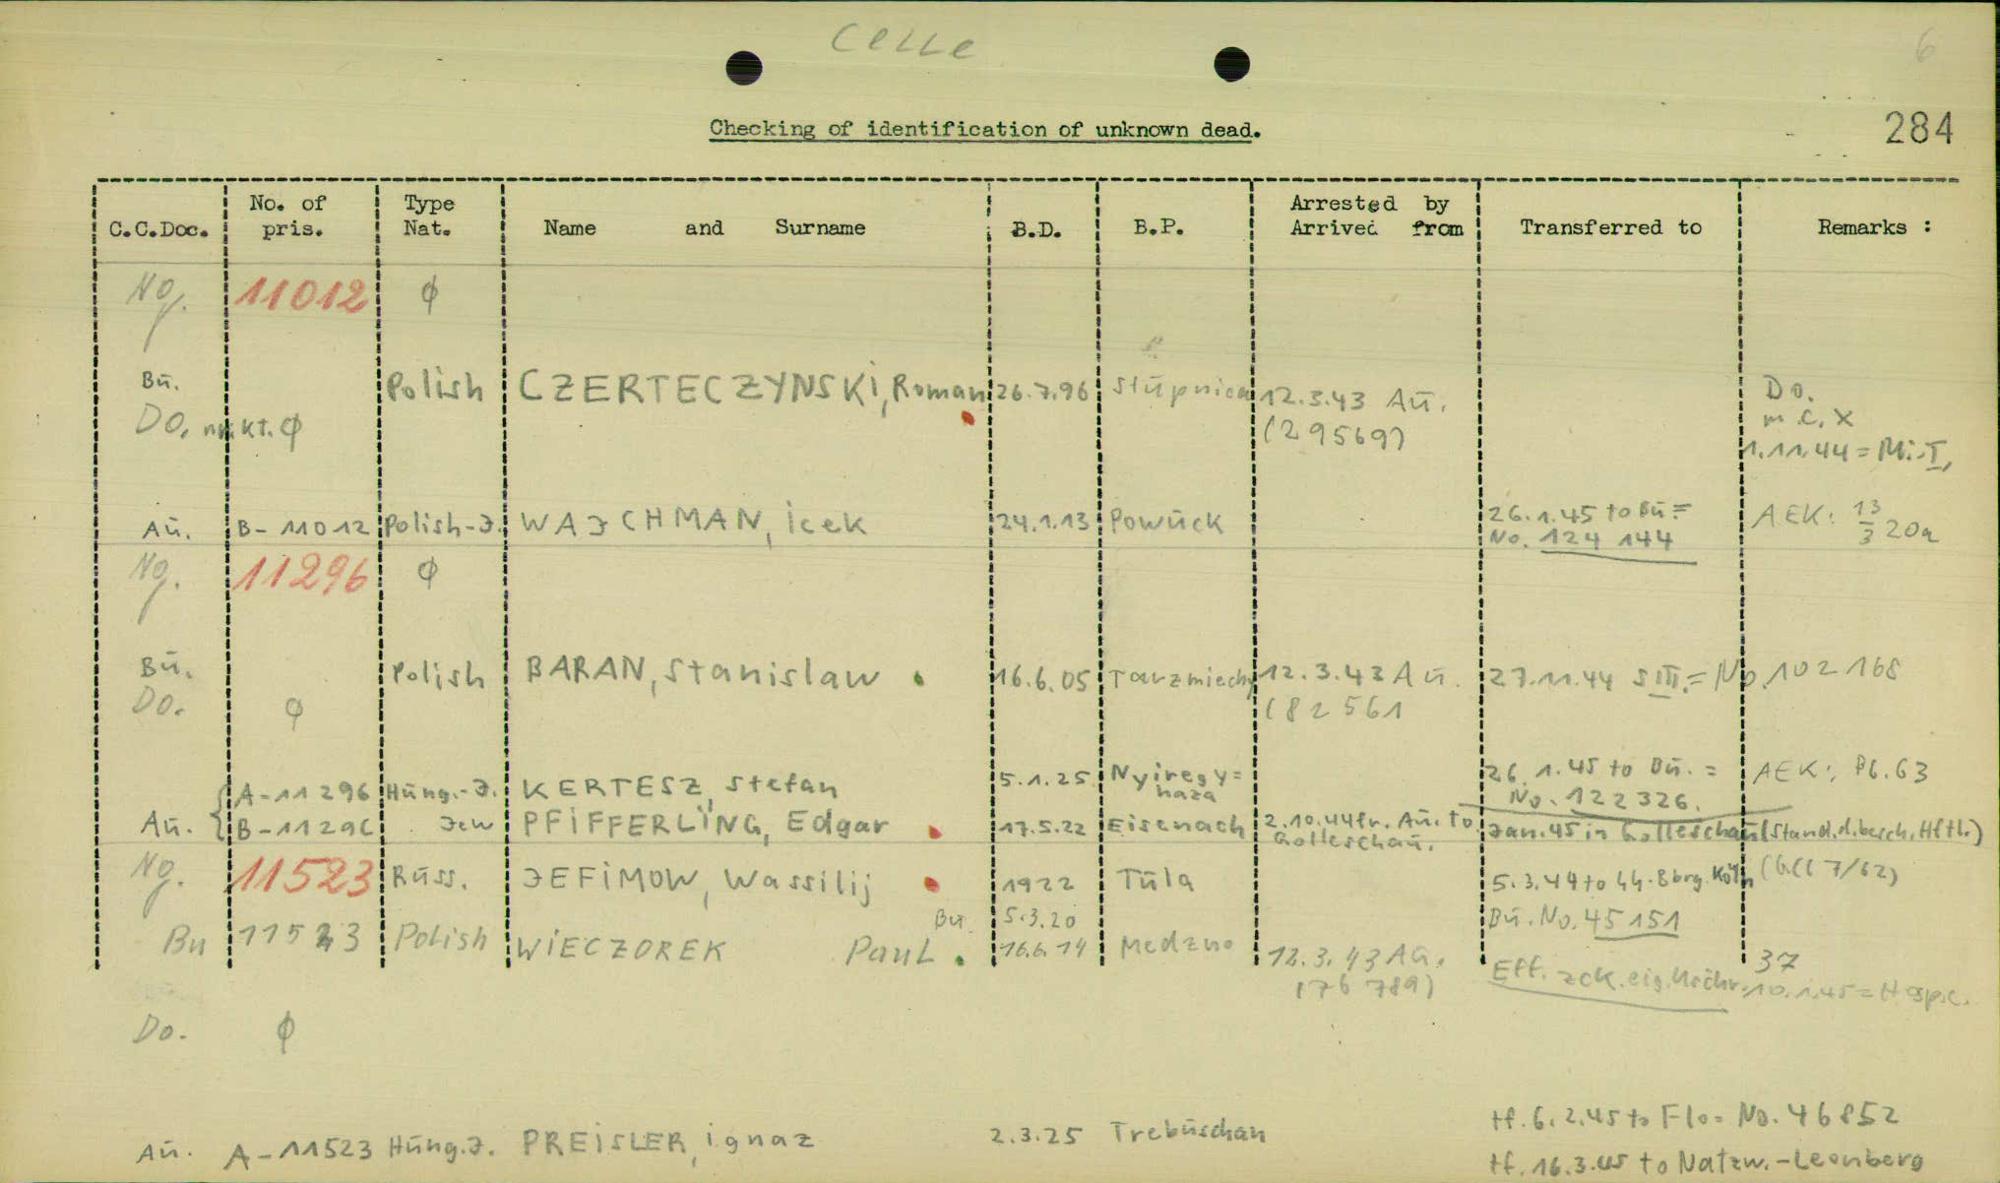 Celle
6
284
Checking of identification of unknown dead.
C.C.Doc. No. of pris. Type Nat. Name and Surname B.D. B.P. Arrested by Arrived from Transferred to Remarks :
Ng. 11012 ϕ
Bu. Polish CZERTECZYNSKI, Roman 26.7.96 Stupnica 12.3.43 Au. Do.
Do. kt. ϕ (29569) m.C. X
1.11.44 = Mi.-I,
Au. B-11012 Polish-J. WAJCHMAN, icek 24.1.13 Powuck 26.1.45 to Bu = AEK: 13/3 20a
No. 124 144
Ng. 11296 ϕ
Bu. Polish BARAN, Stanislaw 16.6.05 Tarzmiechy 12.3.43 Au. 27.11.44 S III. = No. 102 168
Do. ϕ (82561
A-11296 Hung.-J. KERTESZ, Stefan 5.1.25 Nyiregy= haza 26.1.45 to Bu. = AEK:, Bl. 63
No. 122 326.
Au. B-11296 Jew PFIFFERLING, Edgar 17.5.22 Eisenach 2.10.44 fr. Au. to Golleschau. Jan. 45 in Golleschau (Stand.d.besch. Hftl.)
Ng. 11523 Russ. JEFIMOW, Wassilij 1922 Tula 5.3.44 to Köln (GCC 7/62)
Bu. 5.3.20 Bu. No. 45 151
Bu 11523 Polish WIECZOREK Paul 16.6.14 Medzno 12.3.43 Au. 37
(76 789) Eff. zck. 10.1.45 = Hosp.
Do. ϕ
Au. A-11523 Hung.J. PREISLER, ignaz 2.3.25 Trebuschan tf. 6.2.45 to Flo = No. 46852
tf. 16.3.45 to Natzw.-Leonberg